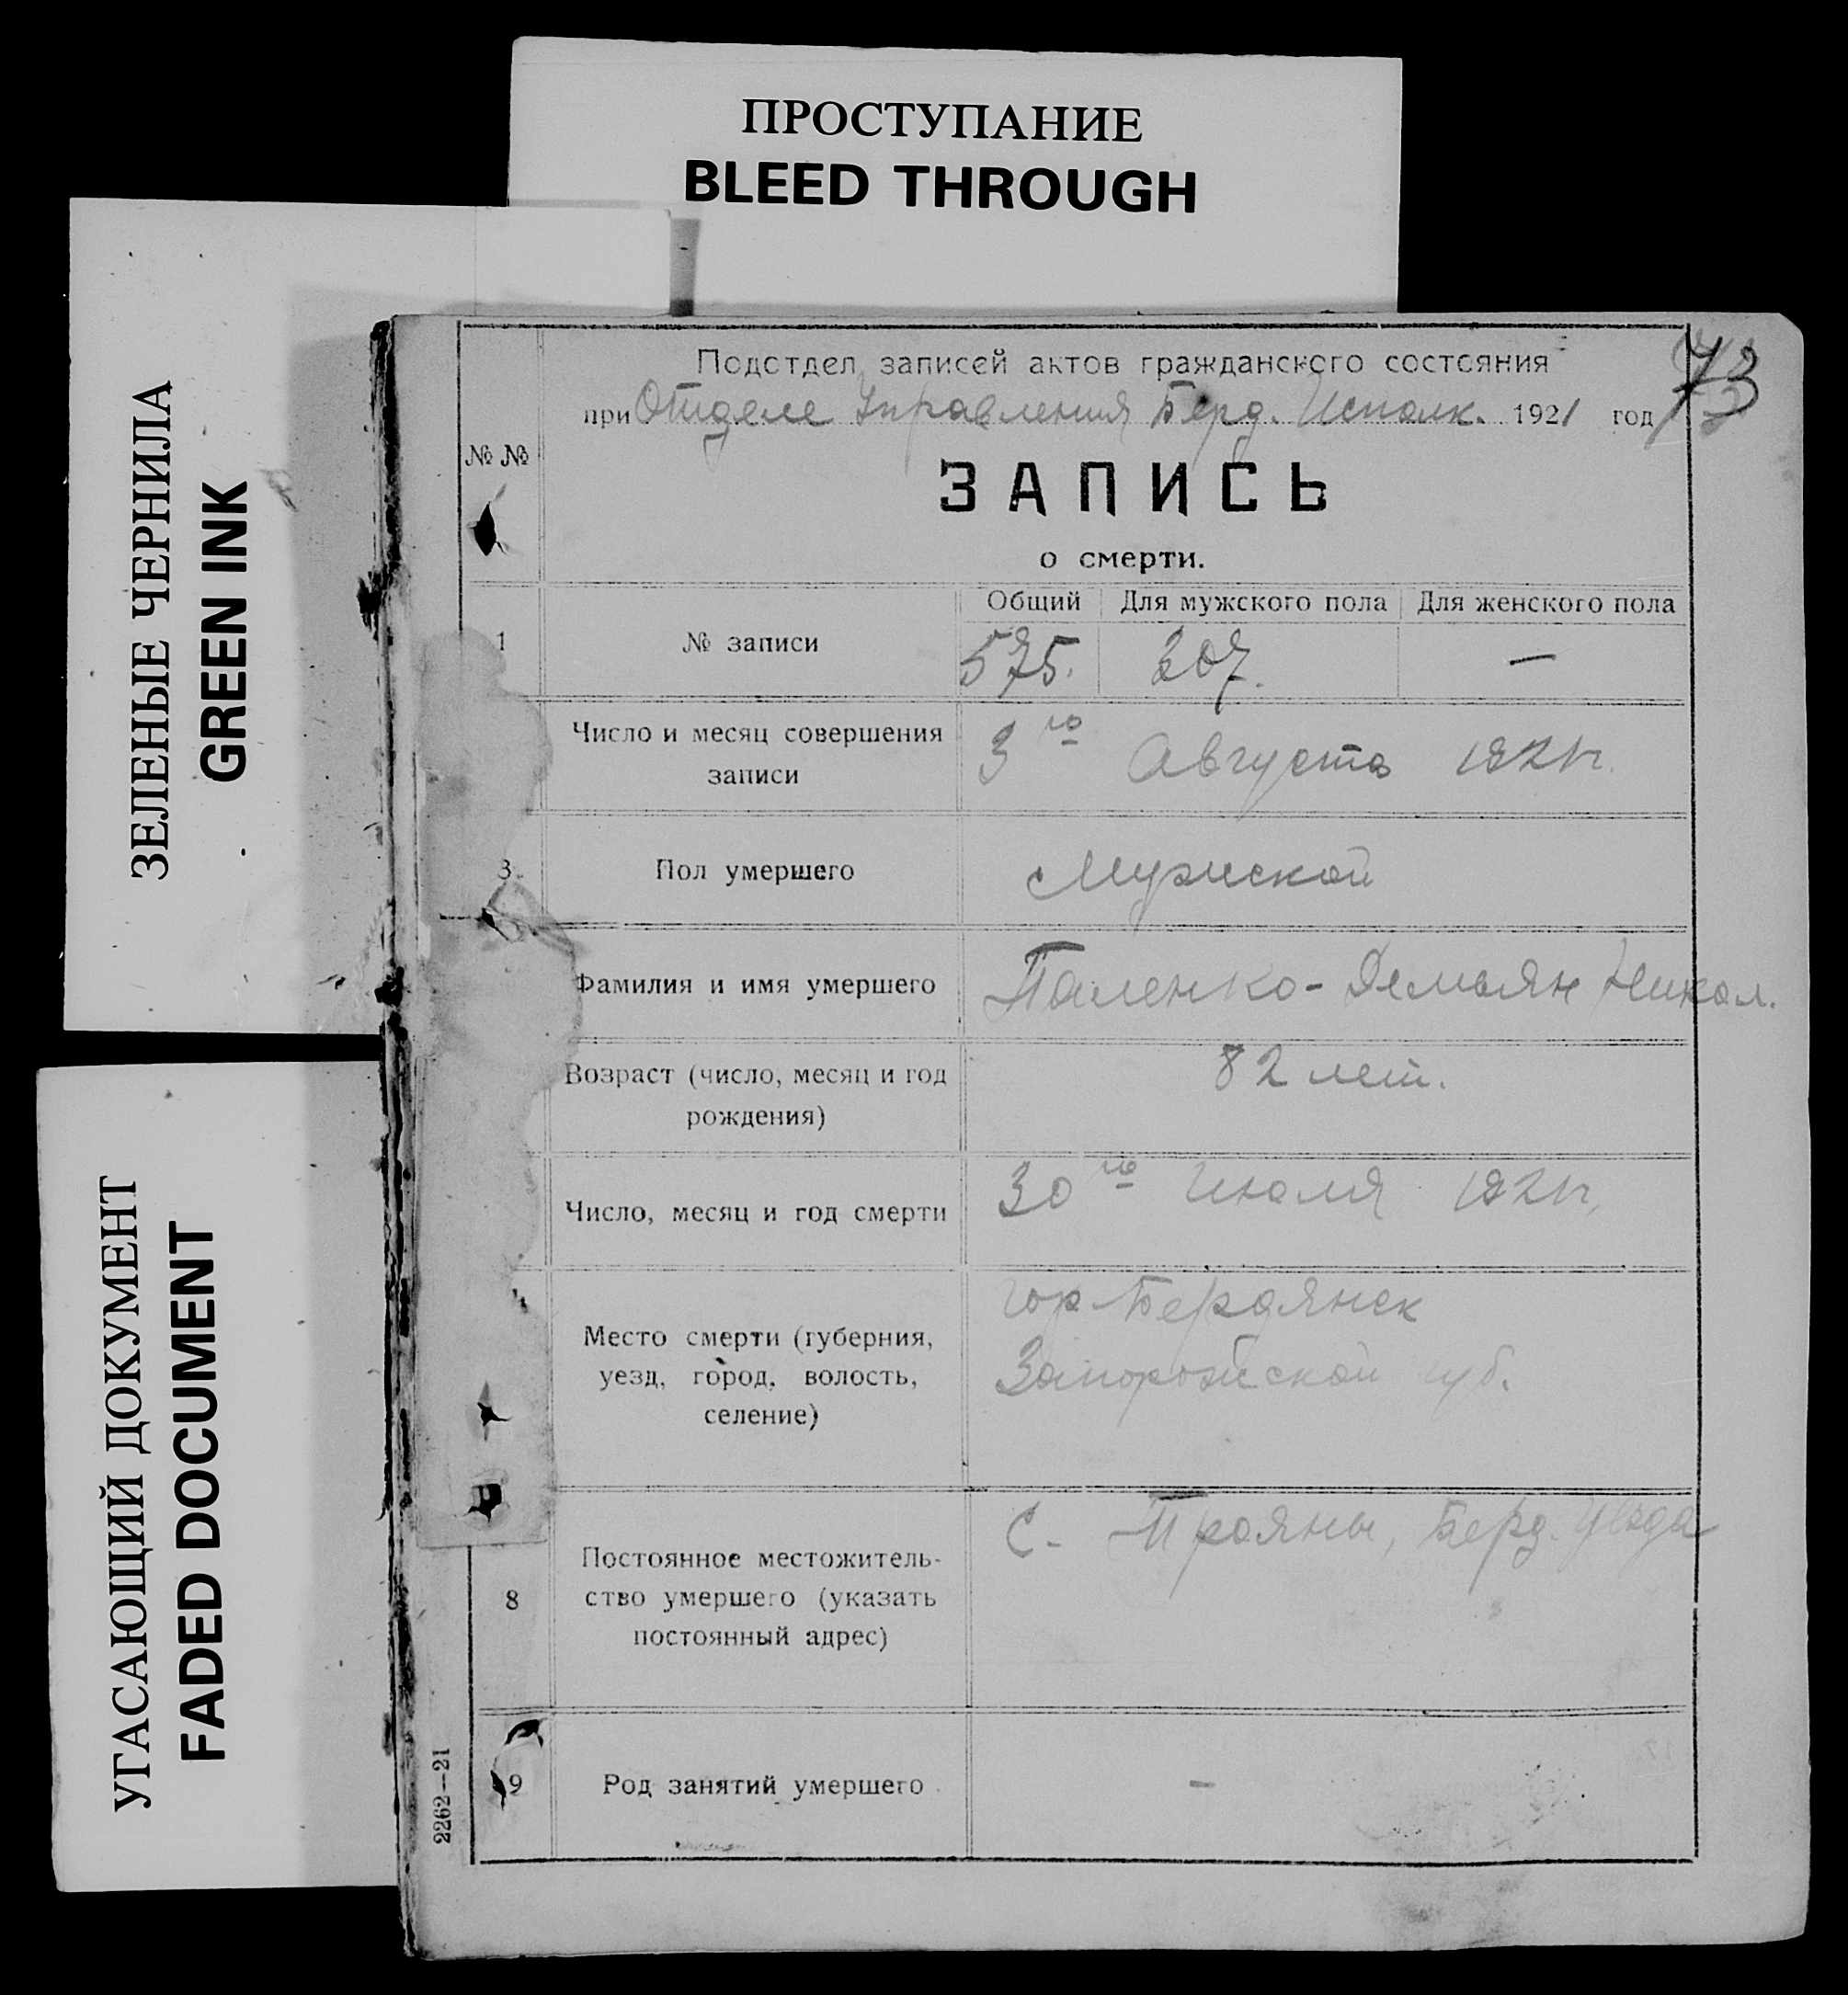 ПРОСТУПАНИЕ
BLEED THROUGH
ЗЕЛЕНЫЕ ЧЕРНИЛА
GREEN INK
УГАСАЮЩИЙ ДОКУМЕНТ
FADED DOCUMENT
73
Подотдел записей актов гражданского состояния
при Отделе Управления Берд. Исполк. 1921 год
№ №
ЗАПИСЬ
о смерти.
Общий Для мужского пола Для женского пола
1 № записи 575. 307. —
Число и месяц совершения
записи
3го Августа 1921 г.
3 Пол умершего Мужской
Фамилия и имя умершего Паленко - Демьян Никол.
Возраст (число, месяц и год
рождения)
82 лет.
Число, месяц и год смерти 30го Июля 1921 г.
Место смерти (губерния,
уезд, город, волость,
селение)
гор. Бердянск
Запорожской губ.
8 Постоянное местожитель-
ство умершего (указать
постоянный адрес)
С. Трояны, Берд. уезда
9 Род занятий умершего —
2262—21